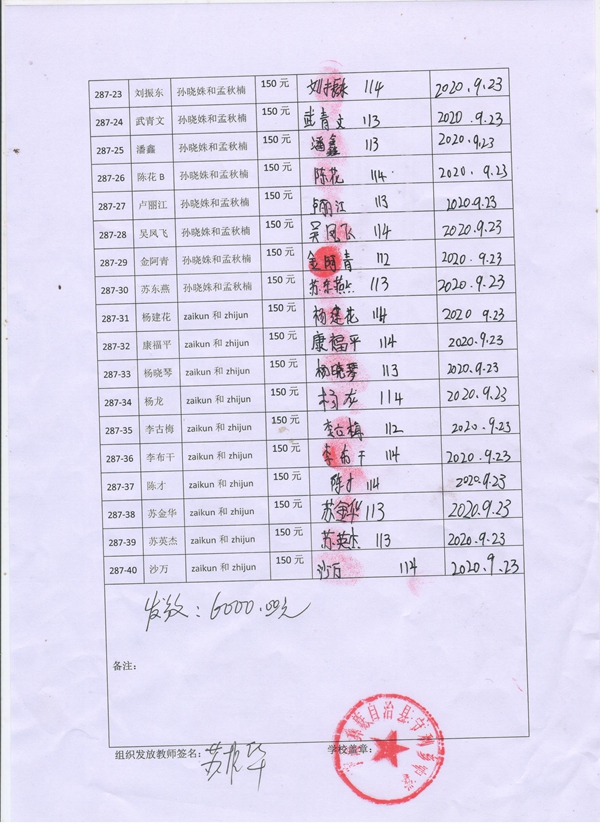 287-23 刘振东 孙晓姝和孟秋楠 150 元 刘振东 114 2020.9.23
287-24 武青文 孙晓姝和孟秋楠 150 元 武青文 113 2020.9.23
287-25 潘鑫 孙晓姝和孟秋楠 150 元 潘鑫 113 2020.9.23
287-26 陈花 B 孙晓姝和孟秋楠 150 元 陈花 114 2020.9.23
287-27 卢丽江 孙晓姝和孟秋楠 150 元 卢丽江 113 2020.9.23
287-28 吴凤飞 孙晓姝和孟秋楠 150 元 吴凤飞 114 2020.9.23
287-29 金阿青 孙晓姝和孟秋楠 150 元 金阿青 112 2020.9.23
287-30 苏东燕 孙晓姝和孟秋楠 150 元 苏东燕 113 2020.9.23
287-31 杨建花 zaikun 和 zhijun 150 元 杨建花 114 2020 9.23
287-32 康福平 zaikun 和 zhijun 150 元 康福平 114 2020.9.23
287-33 杨晓琴 zaikun 和 zhijun 150 元 杨晓琴 113 2020.9.23
287-34 杨龙 zaikun 和 zhijun 150 元 杨龙 114 2020.9.23
287-35 李古梅 zaikun 和 zhijun 150 元 李古梅 112 2020.9.23
287-36 李布干 zaikun 和 zhijun 150 元 李布干 114 2020.9.23
287-37 陈才 zaikun 和 zhijun 150 元 陈才 114 2020.9.23
287-38 苏金华 zaikun 和 zhijun 150 元 苏金华 113 2020.9.23
287-39 苏英杰 zaikun 和 zhijun 150 元 苏英杰 113 2020.9.23
287-40 沙万 zaikun 和 zhijun 150 元 沙万 114 2020.9.23
发放：6000.00元
备注：
彝族自治县
组织发放教师签名： 学校盖章：